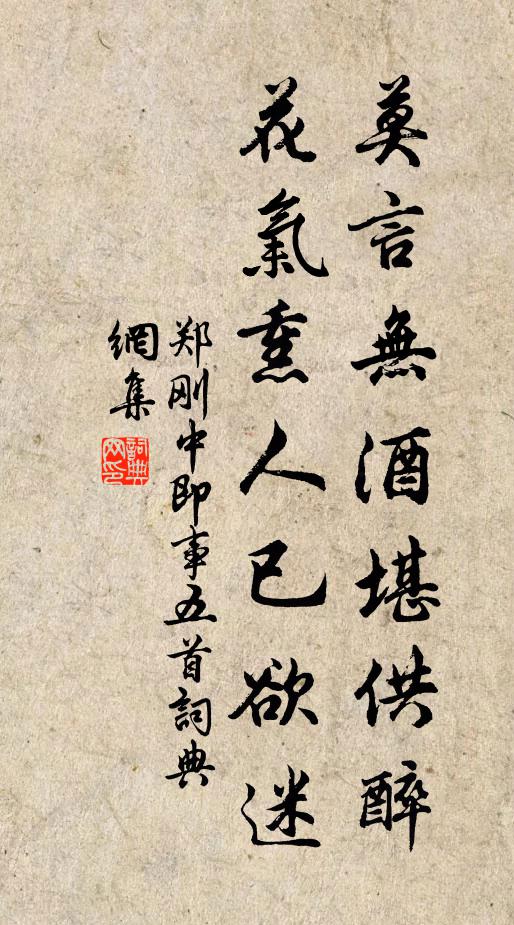 莫言無酒堪供醉
花氣熏人已欲迷
郑刚中即事五首詞典
網集
詞典
网印